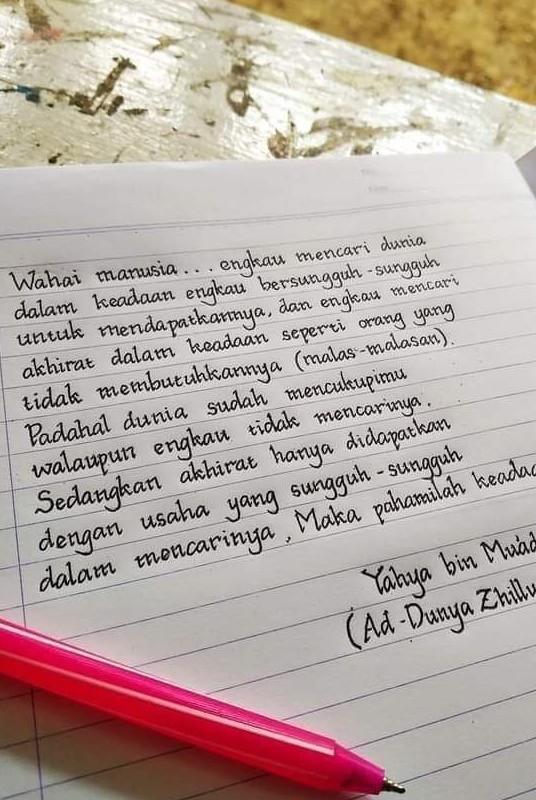 Wahai manusia... engkau mencari dunia
dalam keadaan engkau bersungguh-sungguh
untuk mendapatkannya, dan engkau mencari
akhirat dalam keadaan seperti orang yang
tidak membutuhkannya (malas-malasan).
Padahal dunia sudah mencukupimu
walaupun engkau tidak mencarinya.
Sedangkan akhirat hanya didapatkan
dengan usaha yang sungguh-sungguh
dalam mencarinya, Maka pahamilah
Yahya bin
(Ad-Dunya